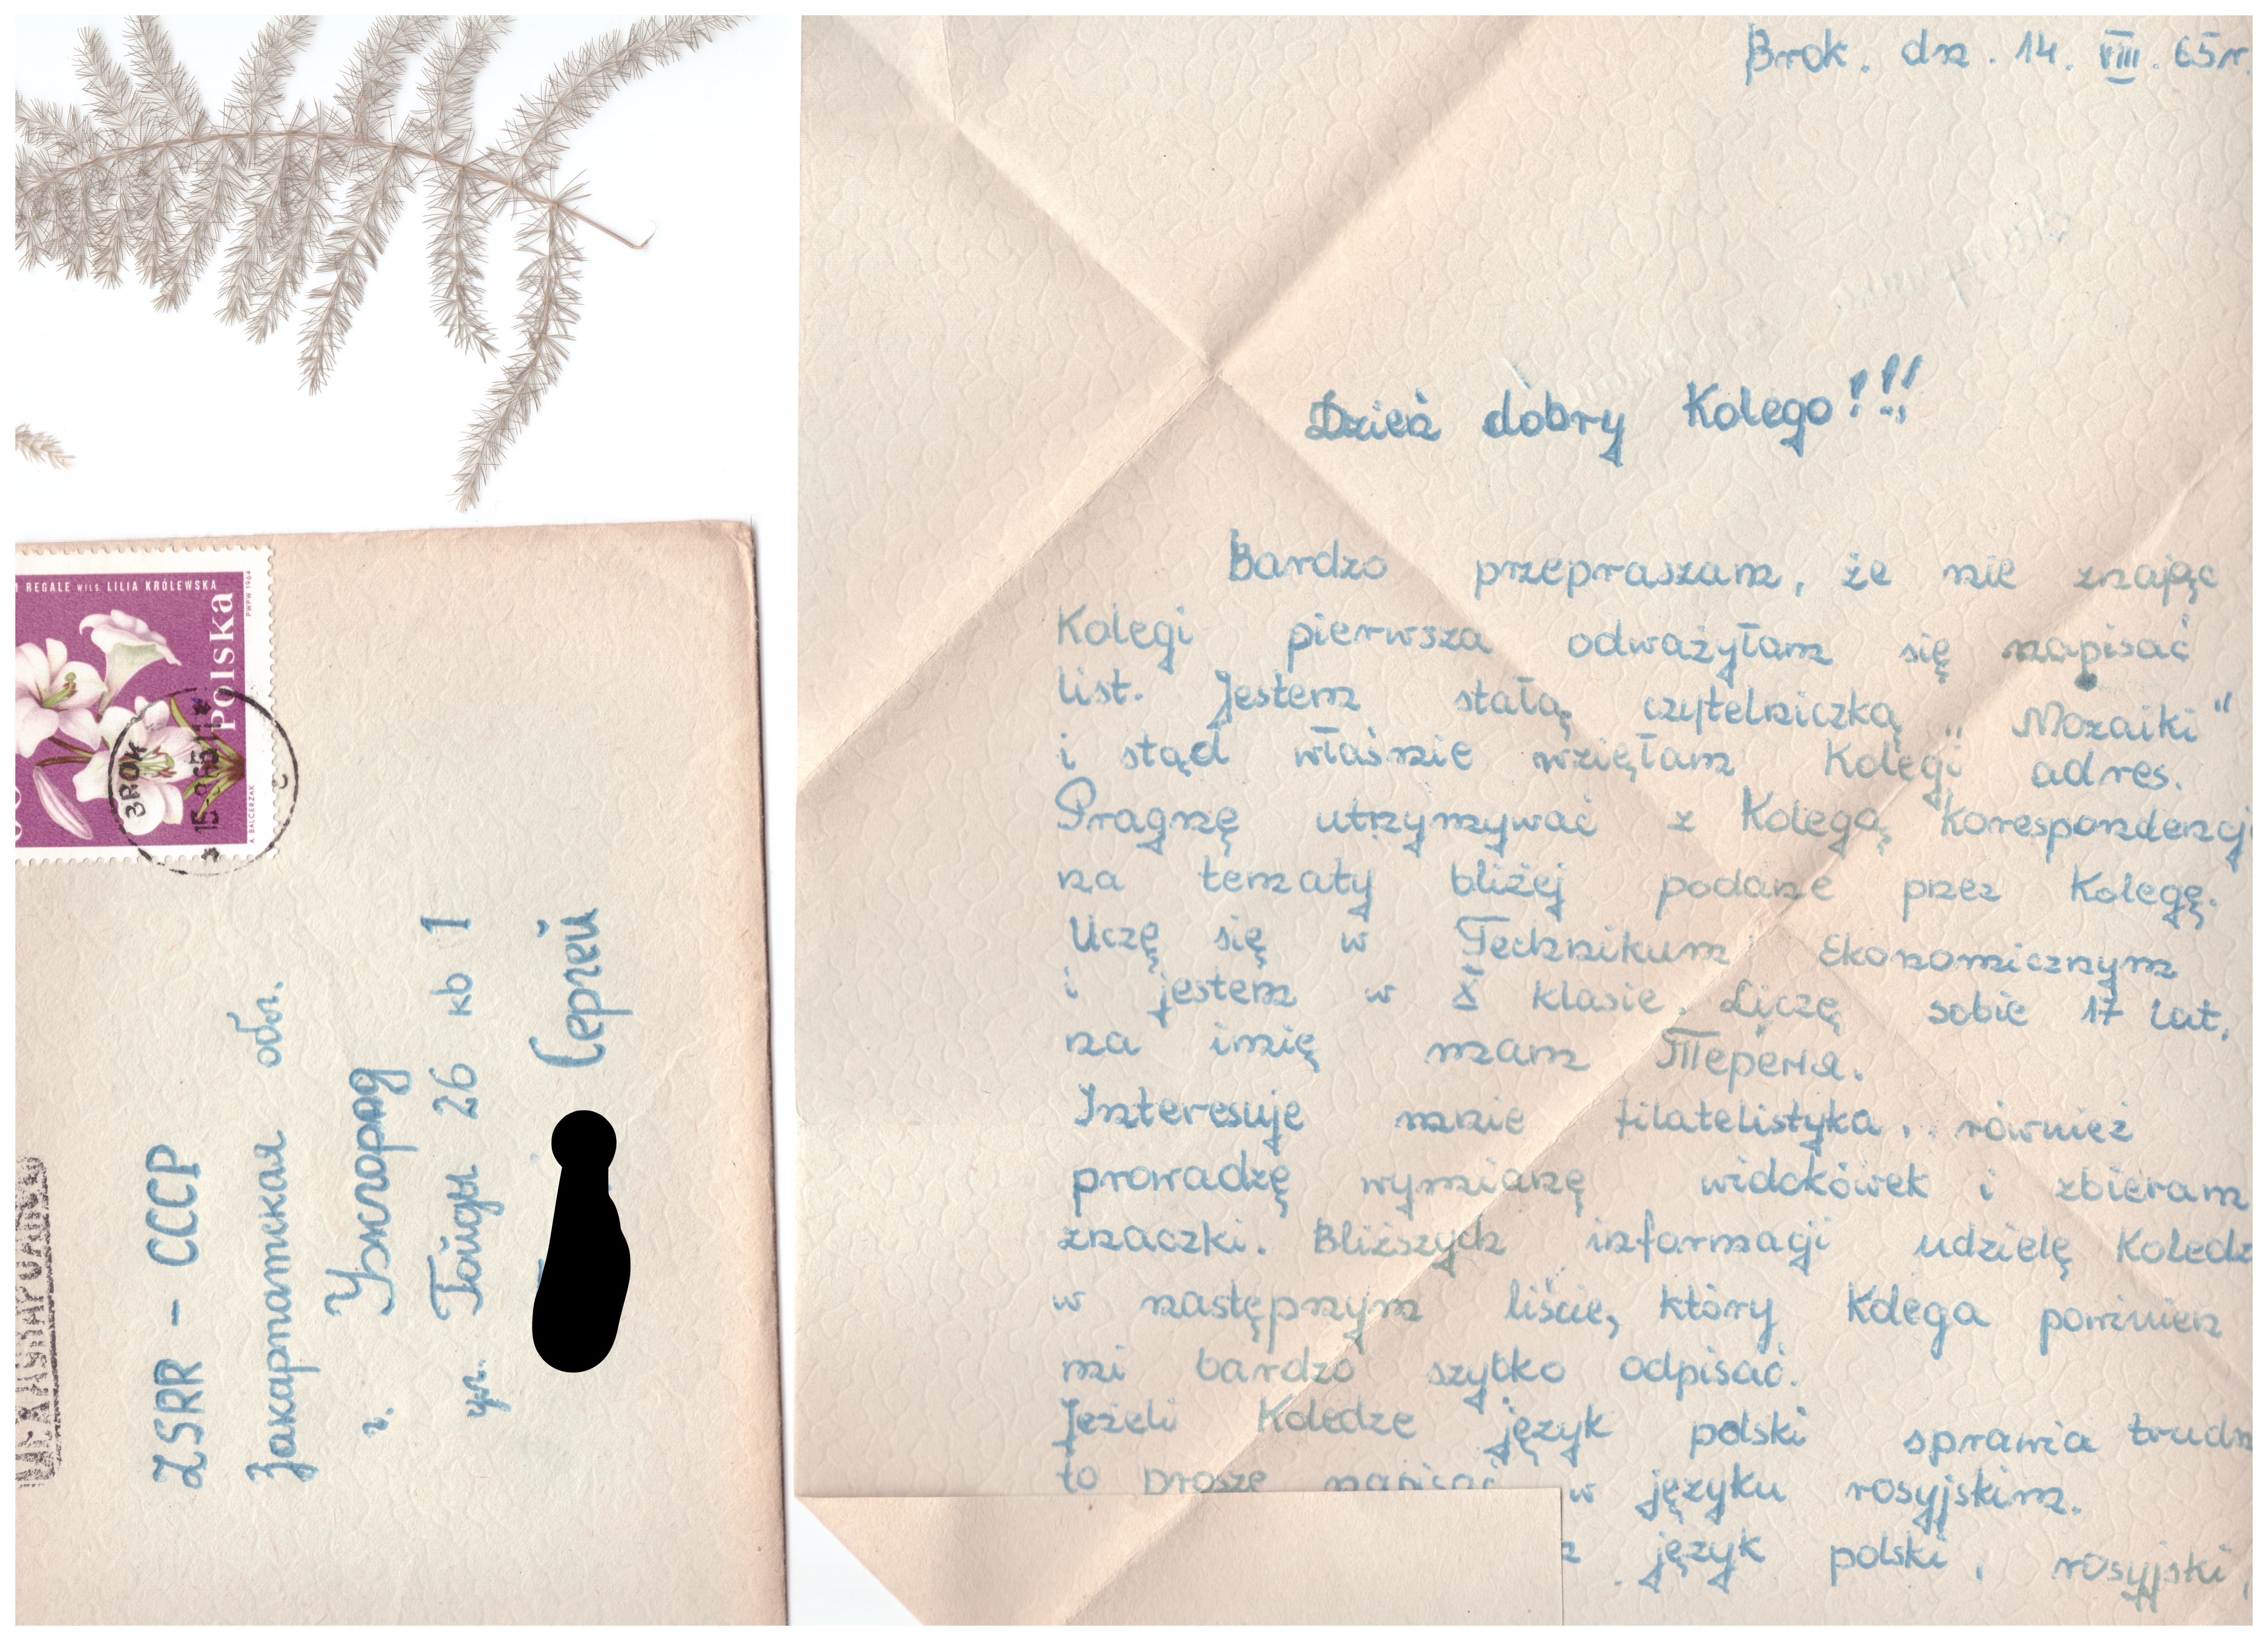 REGALE WILS. LILIA KRÓLEWSKA
PWPW 1964
Polska
A. BALCERZAK
BROK
ZSRR - СССР
Закарпатская обл.
г. Ужгород
ул. Гойды 26 кв 1
Сергей
Brok. dn. 14. VIII. 65r.
Dzień dobry Kolego!!!
Bardzo przepraszam, że nie znając
Kolegi pierwsza odważyłam się napisać
list. Jestem stałą czytelniczką „Mozaiki"
i stąd właśnie wzięłam Kolegi adres.
Pragnę utrzymywać z Kolegą korespondencj
na tematy bliżej podane przez Kolegę.
Uczę się w Technikum Ekonomicznym
i jestem w X klasie. Liczę sobie 17 lat,
na imię mam Терения.
Interesuje mnie filatelistyka, również
prowadzę wymianę widokówek i zbieram
znaczki. Bliższych informagi udzielę Koledz
w następnym liście, który Kolega powinien
mi bardzo szybko odpisać.
Jeżeli Koledze język polski sprawia trudn
to proszę napisać w języku rosyjskim.
język polski, rosyjski,